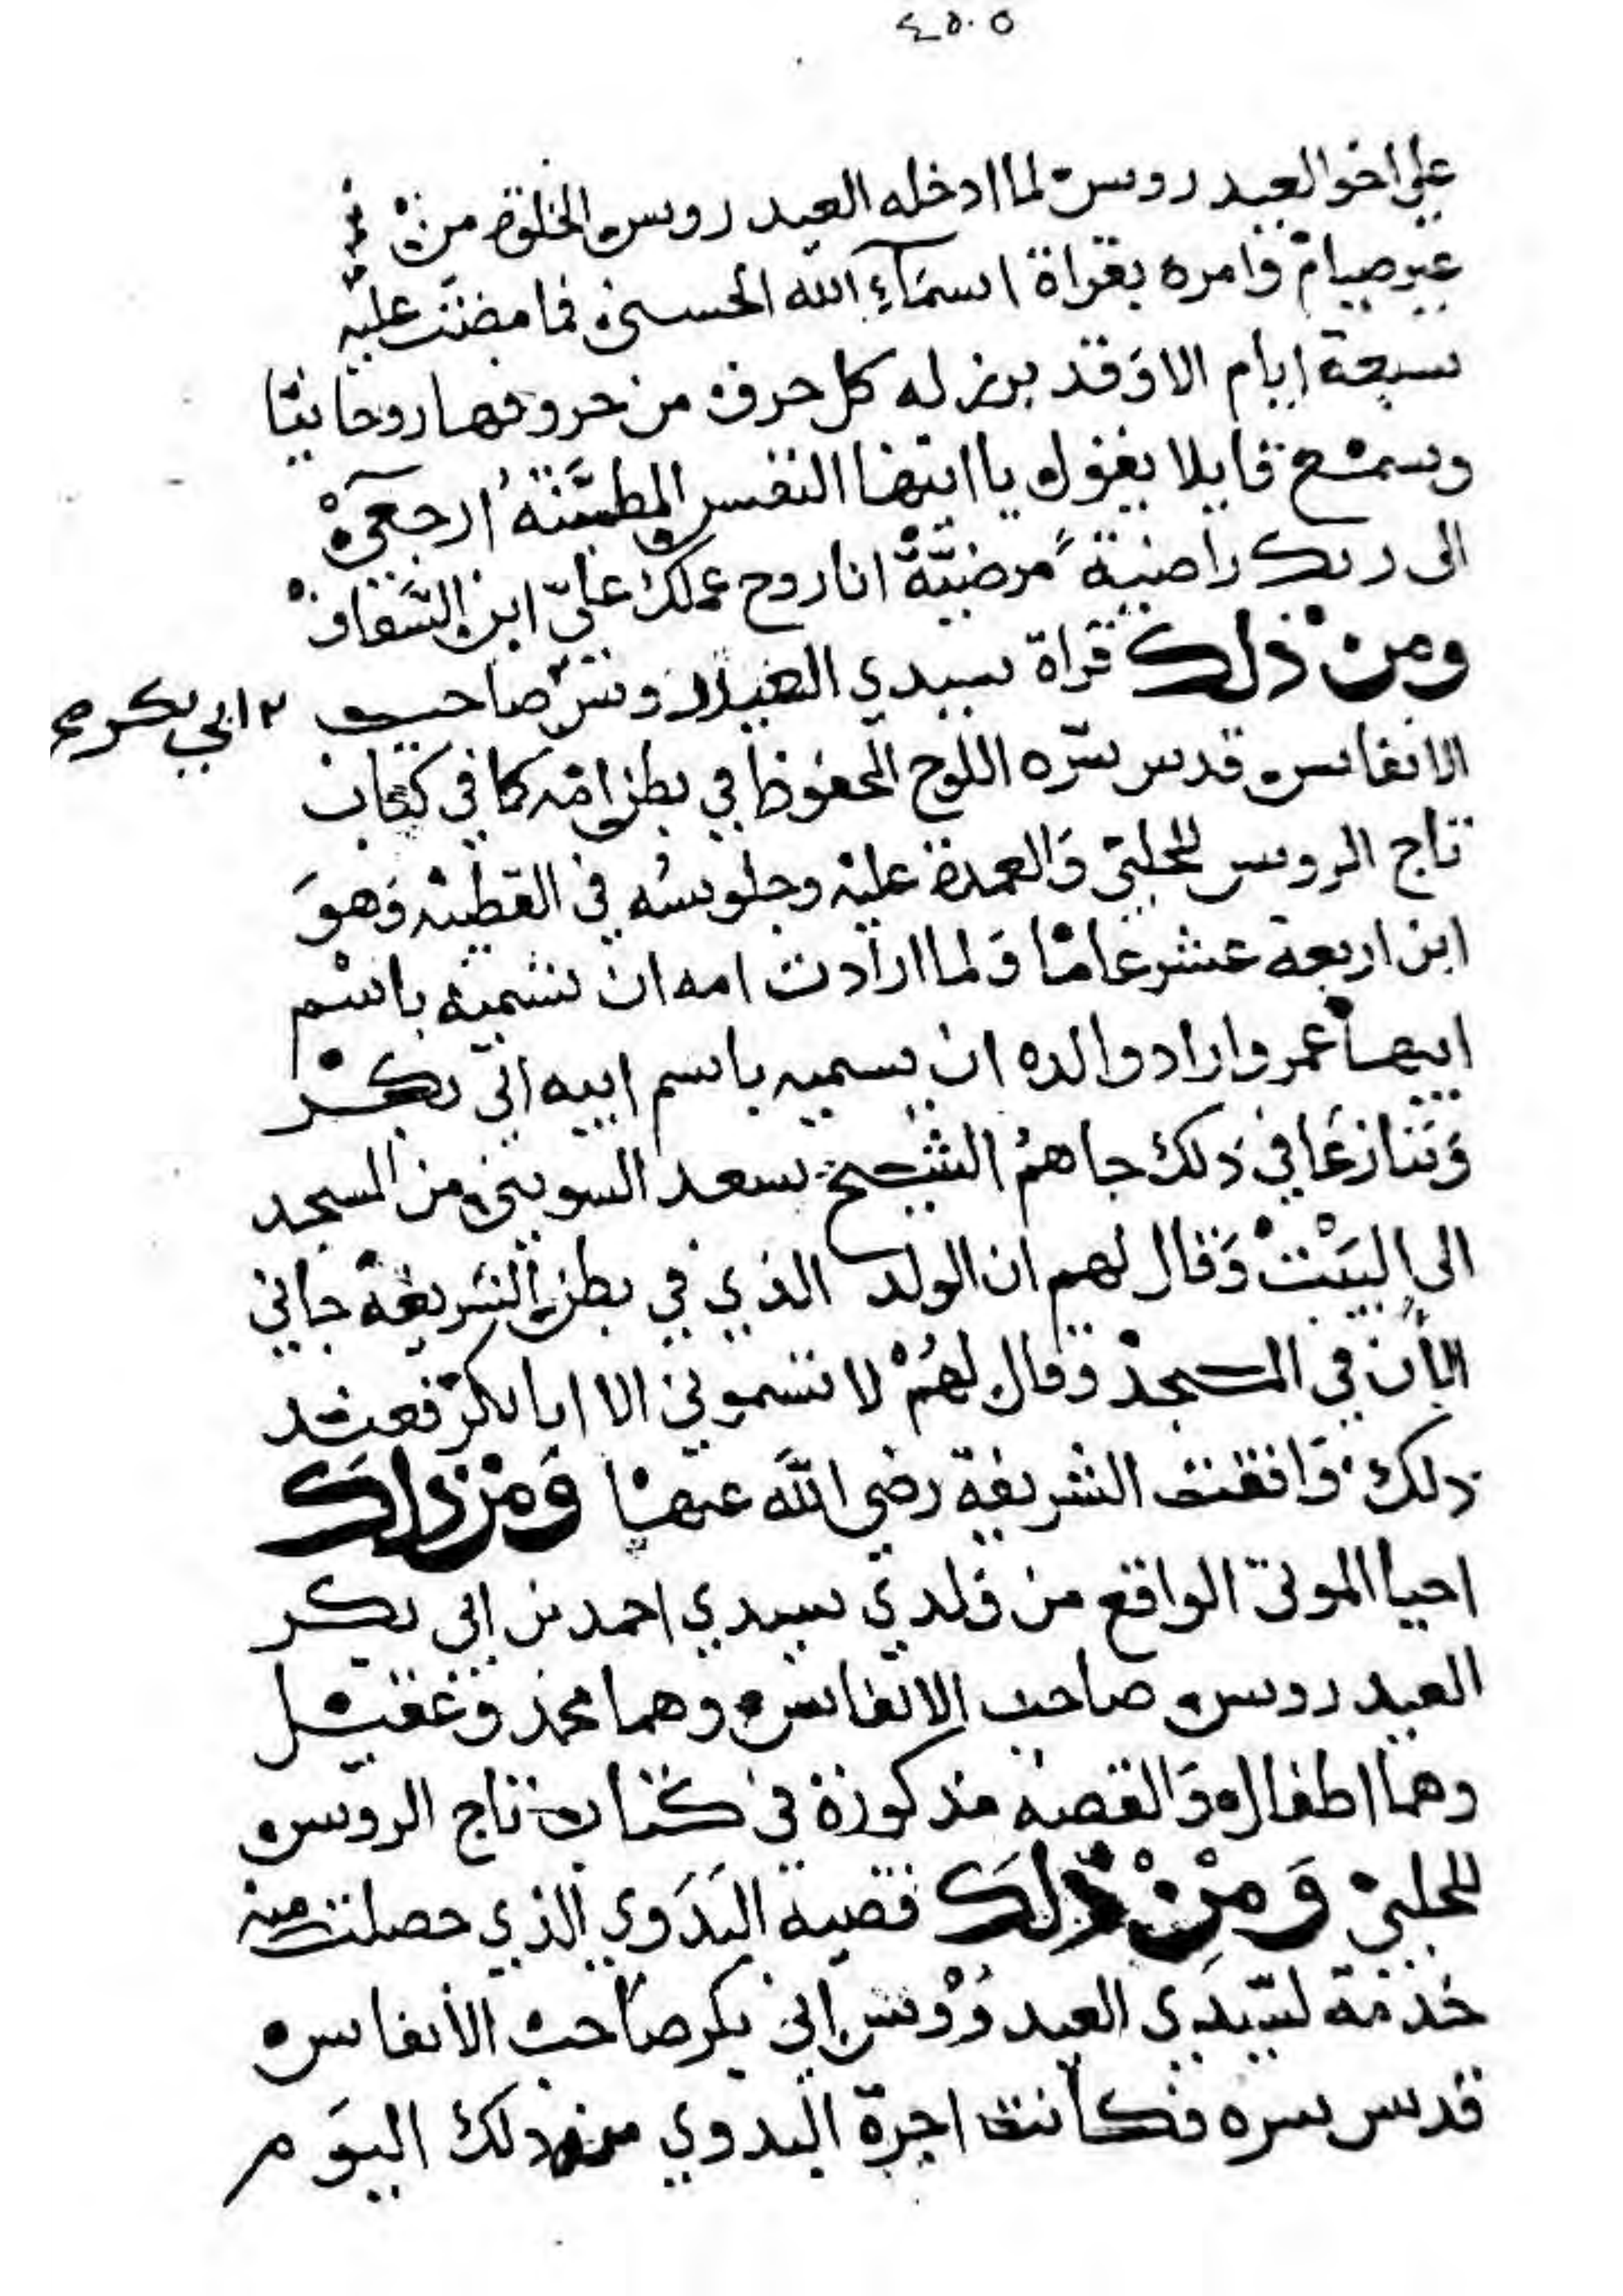 ٤٥٠٥
علي اخو العيدروس لما ادخله العيدروس الخلوة من
غير صيام وامره بقراة اسمآء الله الحسنى فما مضت عليه
سبعة ايام الا وقد برز له كل حرف من حروفها روحانيا
وسمع قايلا يقول يا ايتها النفس المطمئنة ارجعي
الى ربك راضية مرضية انا روح عملك علي ابن السقاف
ومن ذلك قراة سيدي العيدروس صاحب ابي بكر صح
الانفاس قدس سره اللوح المحفوظ في بطن امه كما في كتاب
تاج الروس للحلبي والعمدة عليه وجلوسه في القطبيه وهو
ابن اربعة عشر عاما ولما ارادت امه ان تسميه باسم
ابيها عمر واراد والده ان يسميه باسم ابيه ابي بكر
وتنازعا في ذلك جاهم الشيخ سعد السويني من المسجد
الى البيت وقال لهم ان الولد الذي في بطن الشريفة جاني
الأن في المسجد وقال لهم لا تسموني الا ابا بكر فعند
ذلك وافقت الشريفة رضي الله عنها ومن ذلك
احيا الموتى الواقع من ولدي سيدي احمد بن ابي بكر
العيدروس صاحب الانفاس وهما محمد وعقيل
وهما اطفال والقصه مذكورة في كتاب تاج الروس
للحلبي ومن ذلك قصة البدوي الذي حصلت منه
خدمة لسيدي العيدروس ابي بكر صاحب الأنفاس
قدس سره فكانت اجرة البدوي من ذلك اليوم